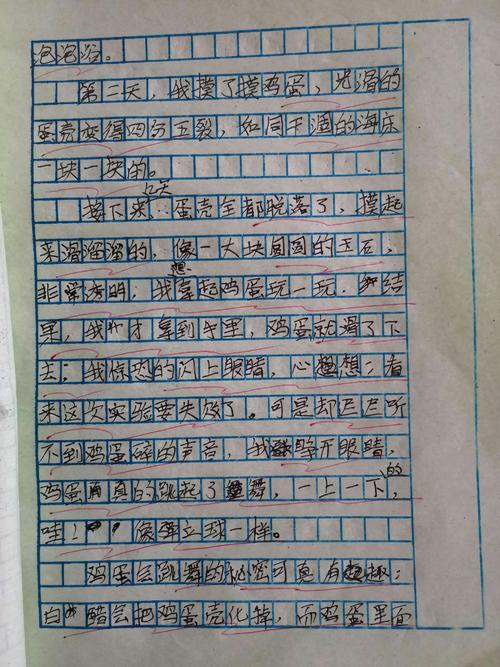 泡泡浴。
第二天，我摸了摸鸡蛋，光滑的
蛋壳变得四分五裂，如同干涸的海床
一块一块的。
接下来几天，蛋壳全都脱落了，摸起
来滑溜溜的，像一大块圆圆的玉石，
非常透明，我想拿起鸡蛋玩一玩，结
果，我才拿到手里，鸡蛋就滑了下
去；我惊恐的闪上眼睛，心想：看
来这次实验要失败了。可是却迟迟听
不到鸡蛋碎的声音，我睁开眼睛，
鸡蛋真的跳起了舞，一上一下的，
哇！像弹立球一样。
鸡蛋会跳舞的秘密可真有趣：
白醋会把鸡蛋壳化掉，而鸡蛋里面